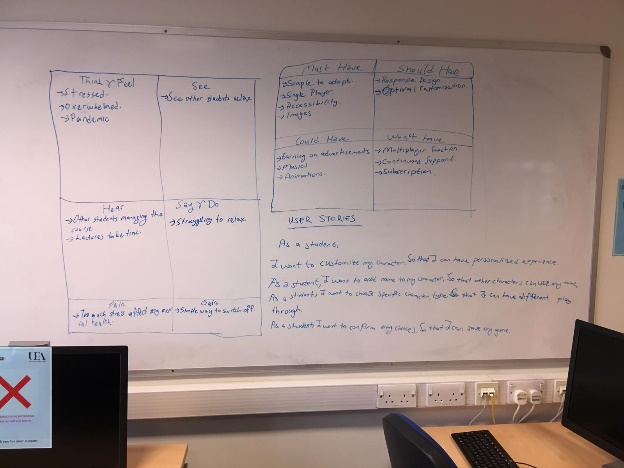 Think & Feel
→Stressed.
→Overwhelmed.
→Pandemic
See
→See other students relax.
Hear
→Other students managing the
course
→Lectures take time.
Say & Do
→Struggling to relax.
Pain
→Too much stress affect my
Gain
→Simple way to switch off
Must Have
→Simple to adopt
→Single Player
→Accessibility
→Images
Should Have
→Responsive Design
→Optional Customisation.
Could Have
→Earning on advertisements
→Musical
→Animations.
Won't have
→Multiplayer Function
→Continuous Support.
→Subscription.
USER STORIES
As a student,
I want to customize my character. So that I can have personalized experience.
As a student, I want to add name to my character, So that other characters can use my name.
As a student, I want to choose specific type So that I can have different play
through.
As a student I want to confirm my choices, So that I can save my game.
UEA